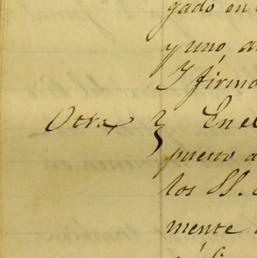 gado en
y uno, a
Y firmo
Otra } En el
puerto a
los SS. d
mente